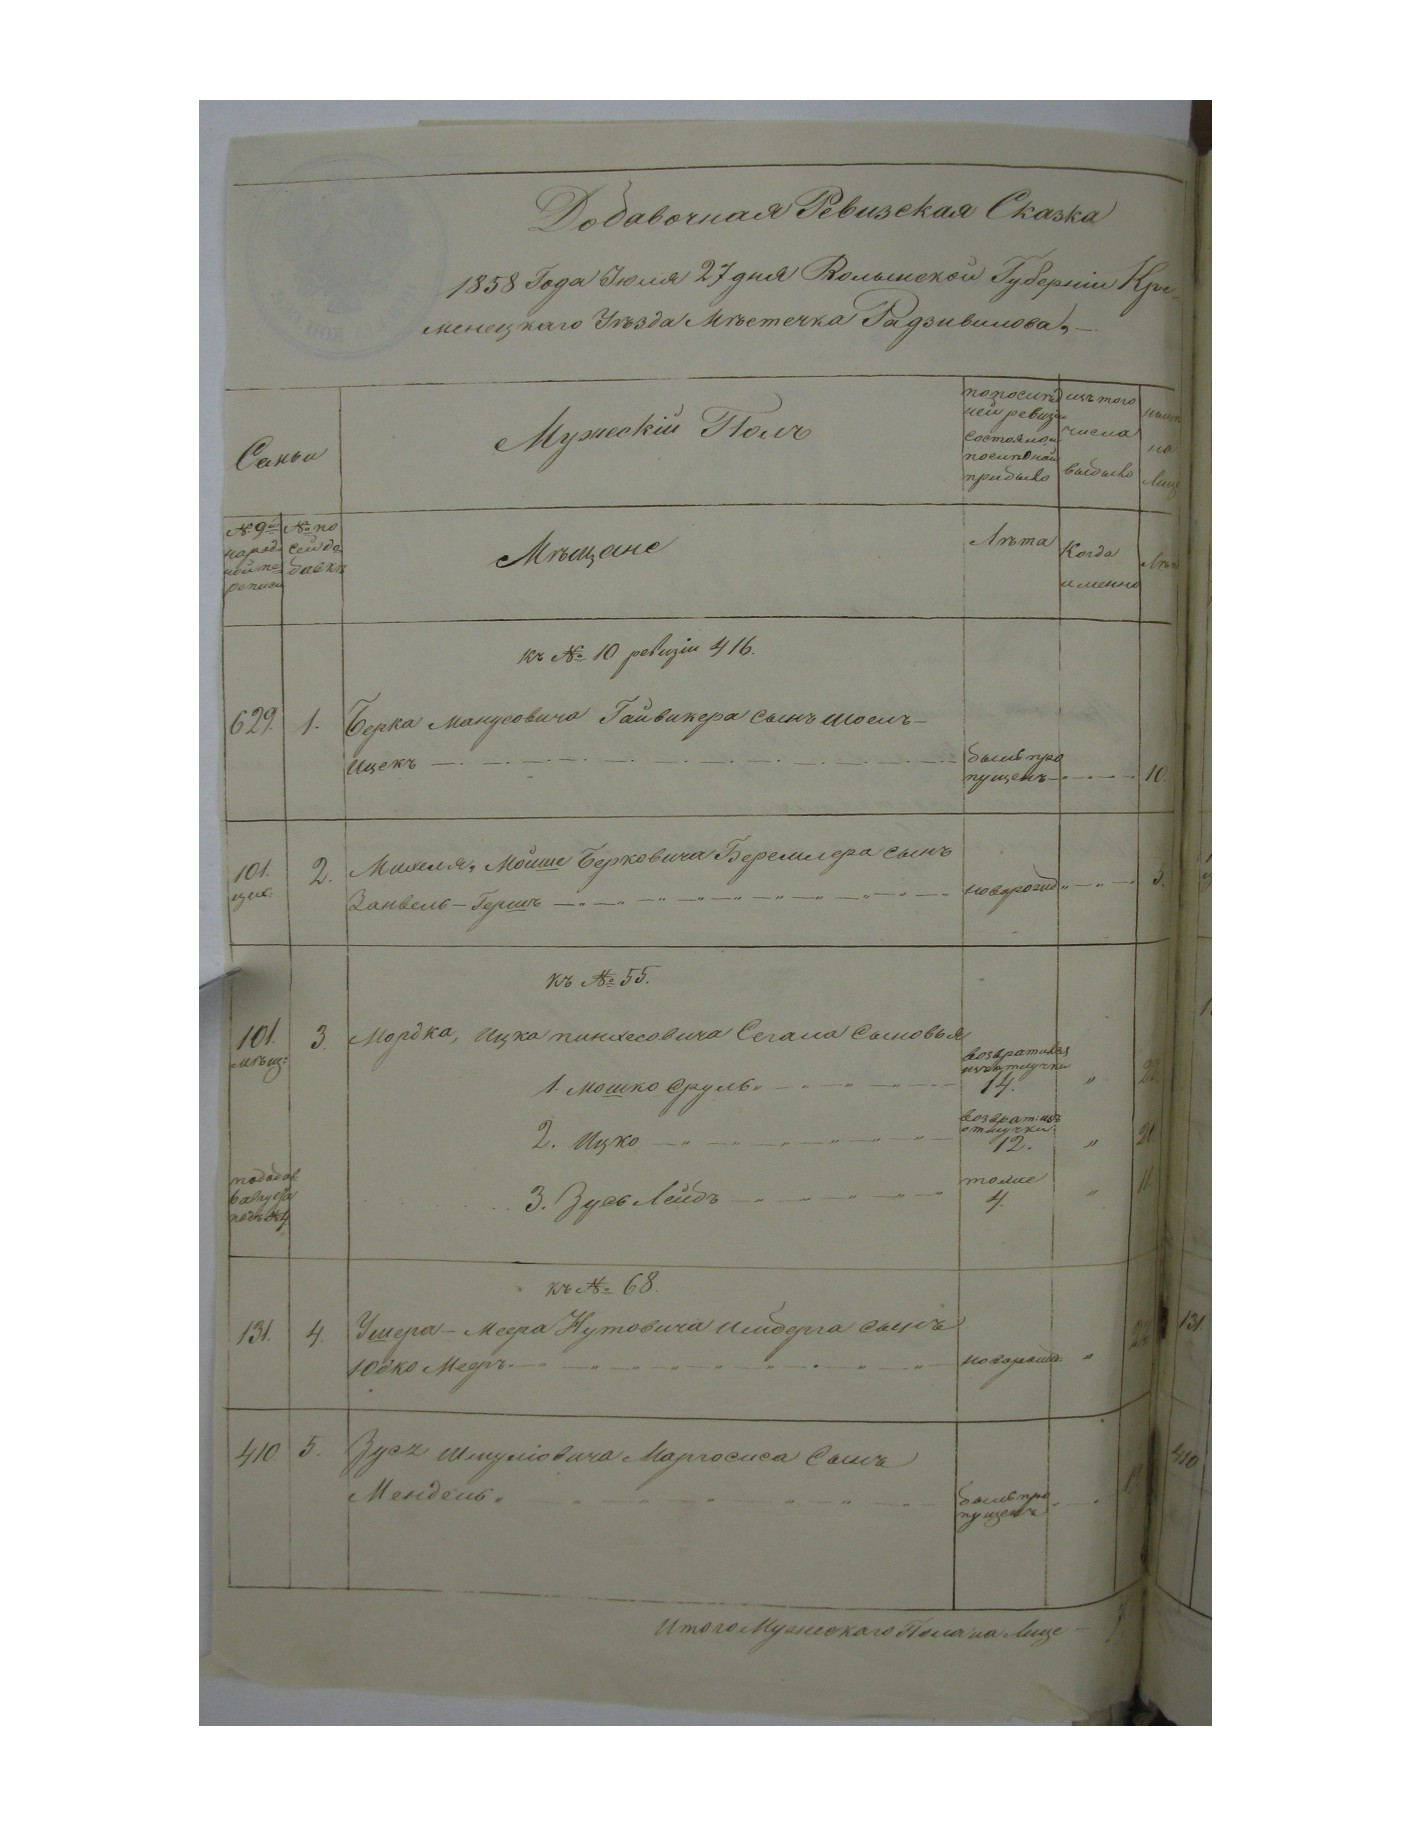 Добавочная Ревизская Сказка
1858 Года Июля 27 дня Волынской Губерніи Кре-
менецкаго Уѣзда Мѣстечка Радзивилова,
Мужескій Полъ
по послѣд
ней ревизіи
состояло и
послѣ оной
прибыло
изъ того
числа
выбыло
нынѣ
на
лице
Семьи
№ 9й
народ
ной пе
реписи
№ по
сей до
бавкѣ
Мѣщане
Лѣта
Когда
именно
Лѣта
къ № 10 ревизіи 416.
629. 1. Берка Манусовича Гайвикера сынъ Шоель-
Ицекъ былъ про
пущенъ 10.
101. 2. Михеля, Мойше Берковича Беремлера сынъ
цех. Занвель-Гершъ новорожд 3.
къ № 55.
101. 3. Мордка, Ицка Пинхесовича Сегала Сыновья
мѣщ:
1. Мошко Сруль возвратился
изъ отлучки
14. " 22.
2. Ицко возврат: изъ
отлучки.
12. " 20
3. Зусь Лейбъ тоже
4. " 11.
къ № 68.
131. 4. Ушера-Меера Нутовича Имберга сынъ
Юдко Мееръ новорожд. "
410. 5. Зусь Шмуліовича Маргосиса Сынъ
Мендель. былъ про
пущенъ
Итого Мужескаго Пола на Лице
131.
410